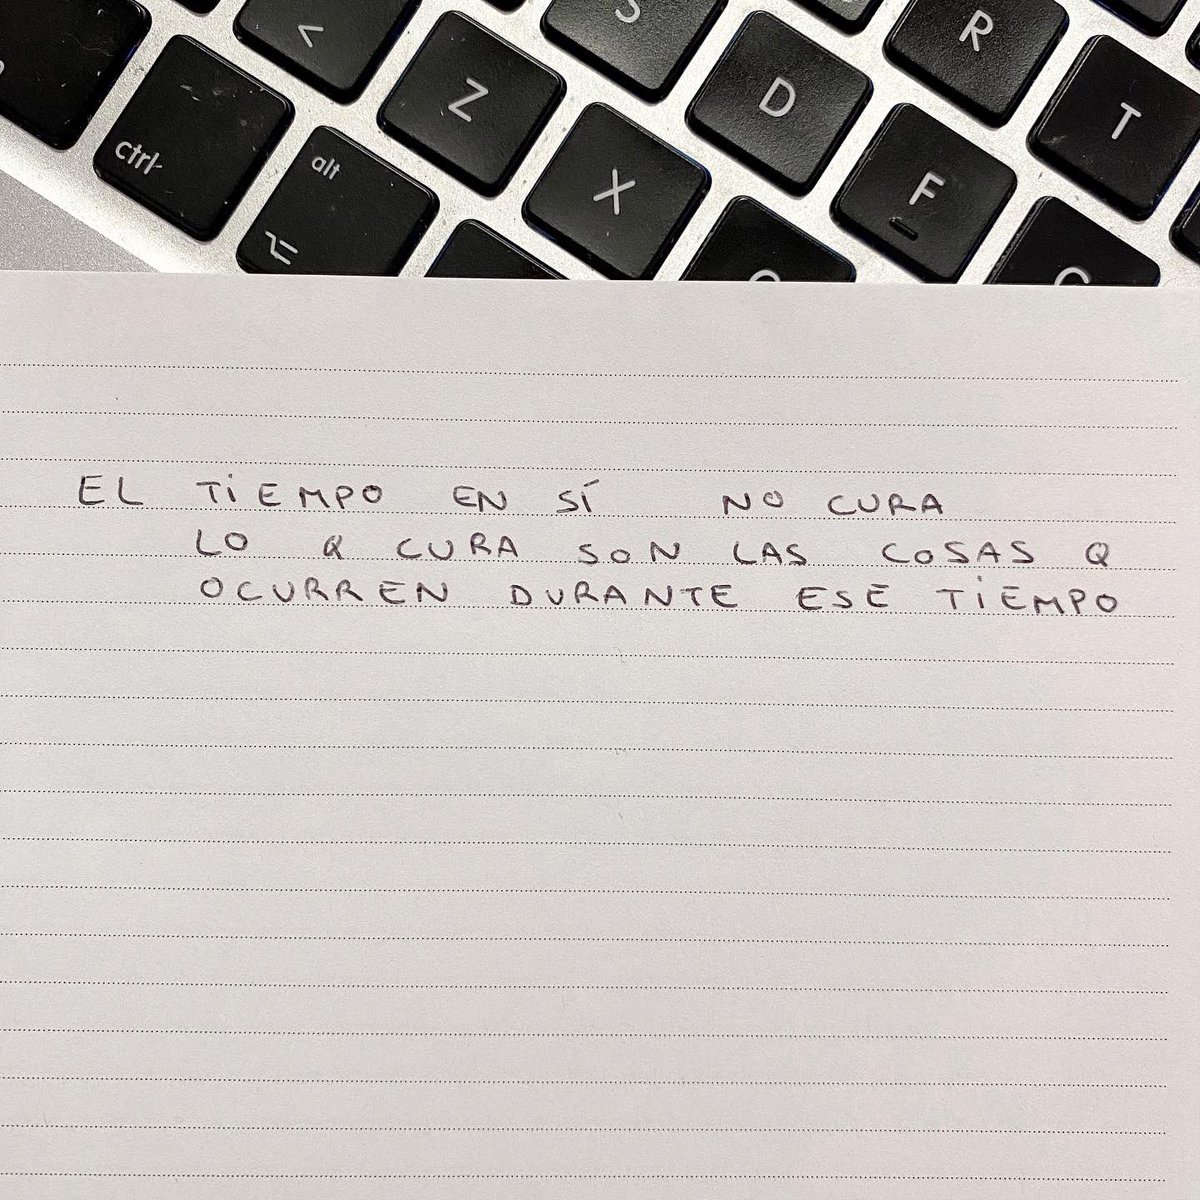 < S R
Z D T
ctrl alt X F
EL TiEMPO EN SÍ NO CURA
LO Q CURA SON LAS COSAS Q
OCURREN DURANTE ESE TiEMPO